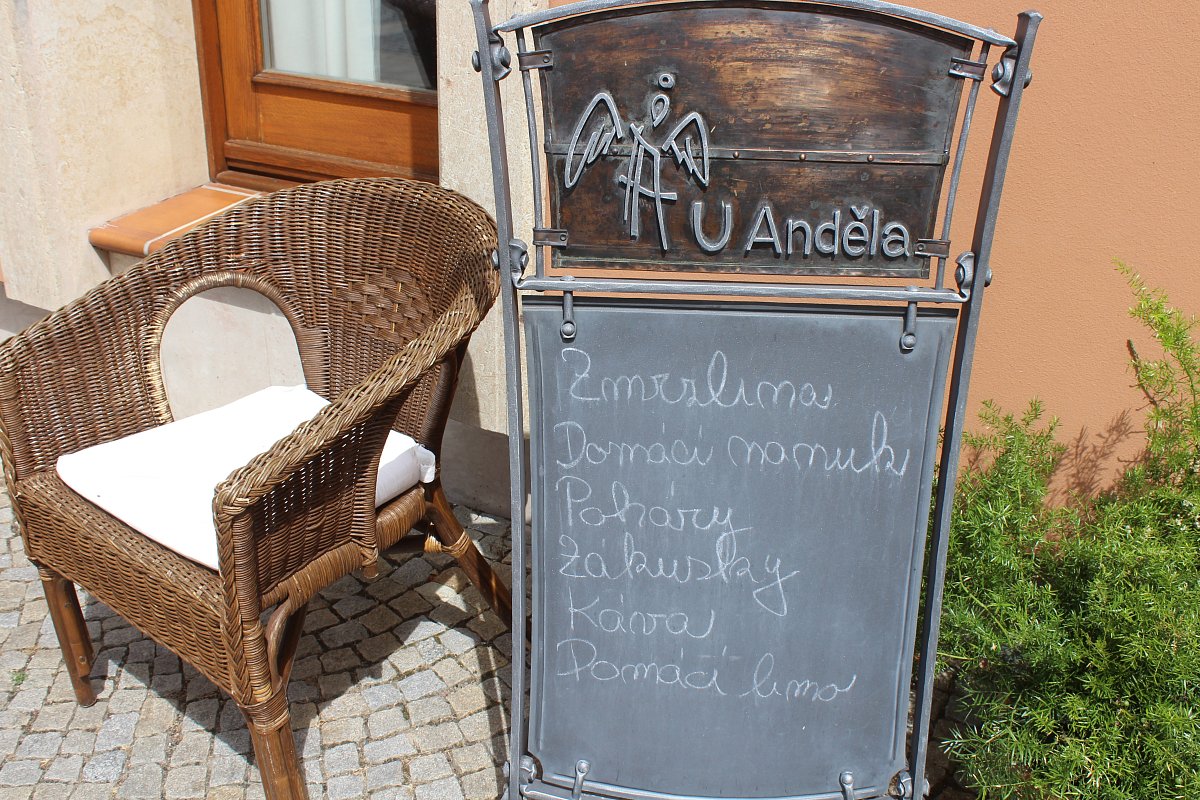 U Anděla
Zmrzlina
Domácí nanuk
Poháry
Zákusky
Káva
Domácí limo